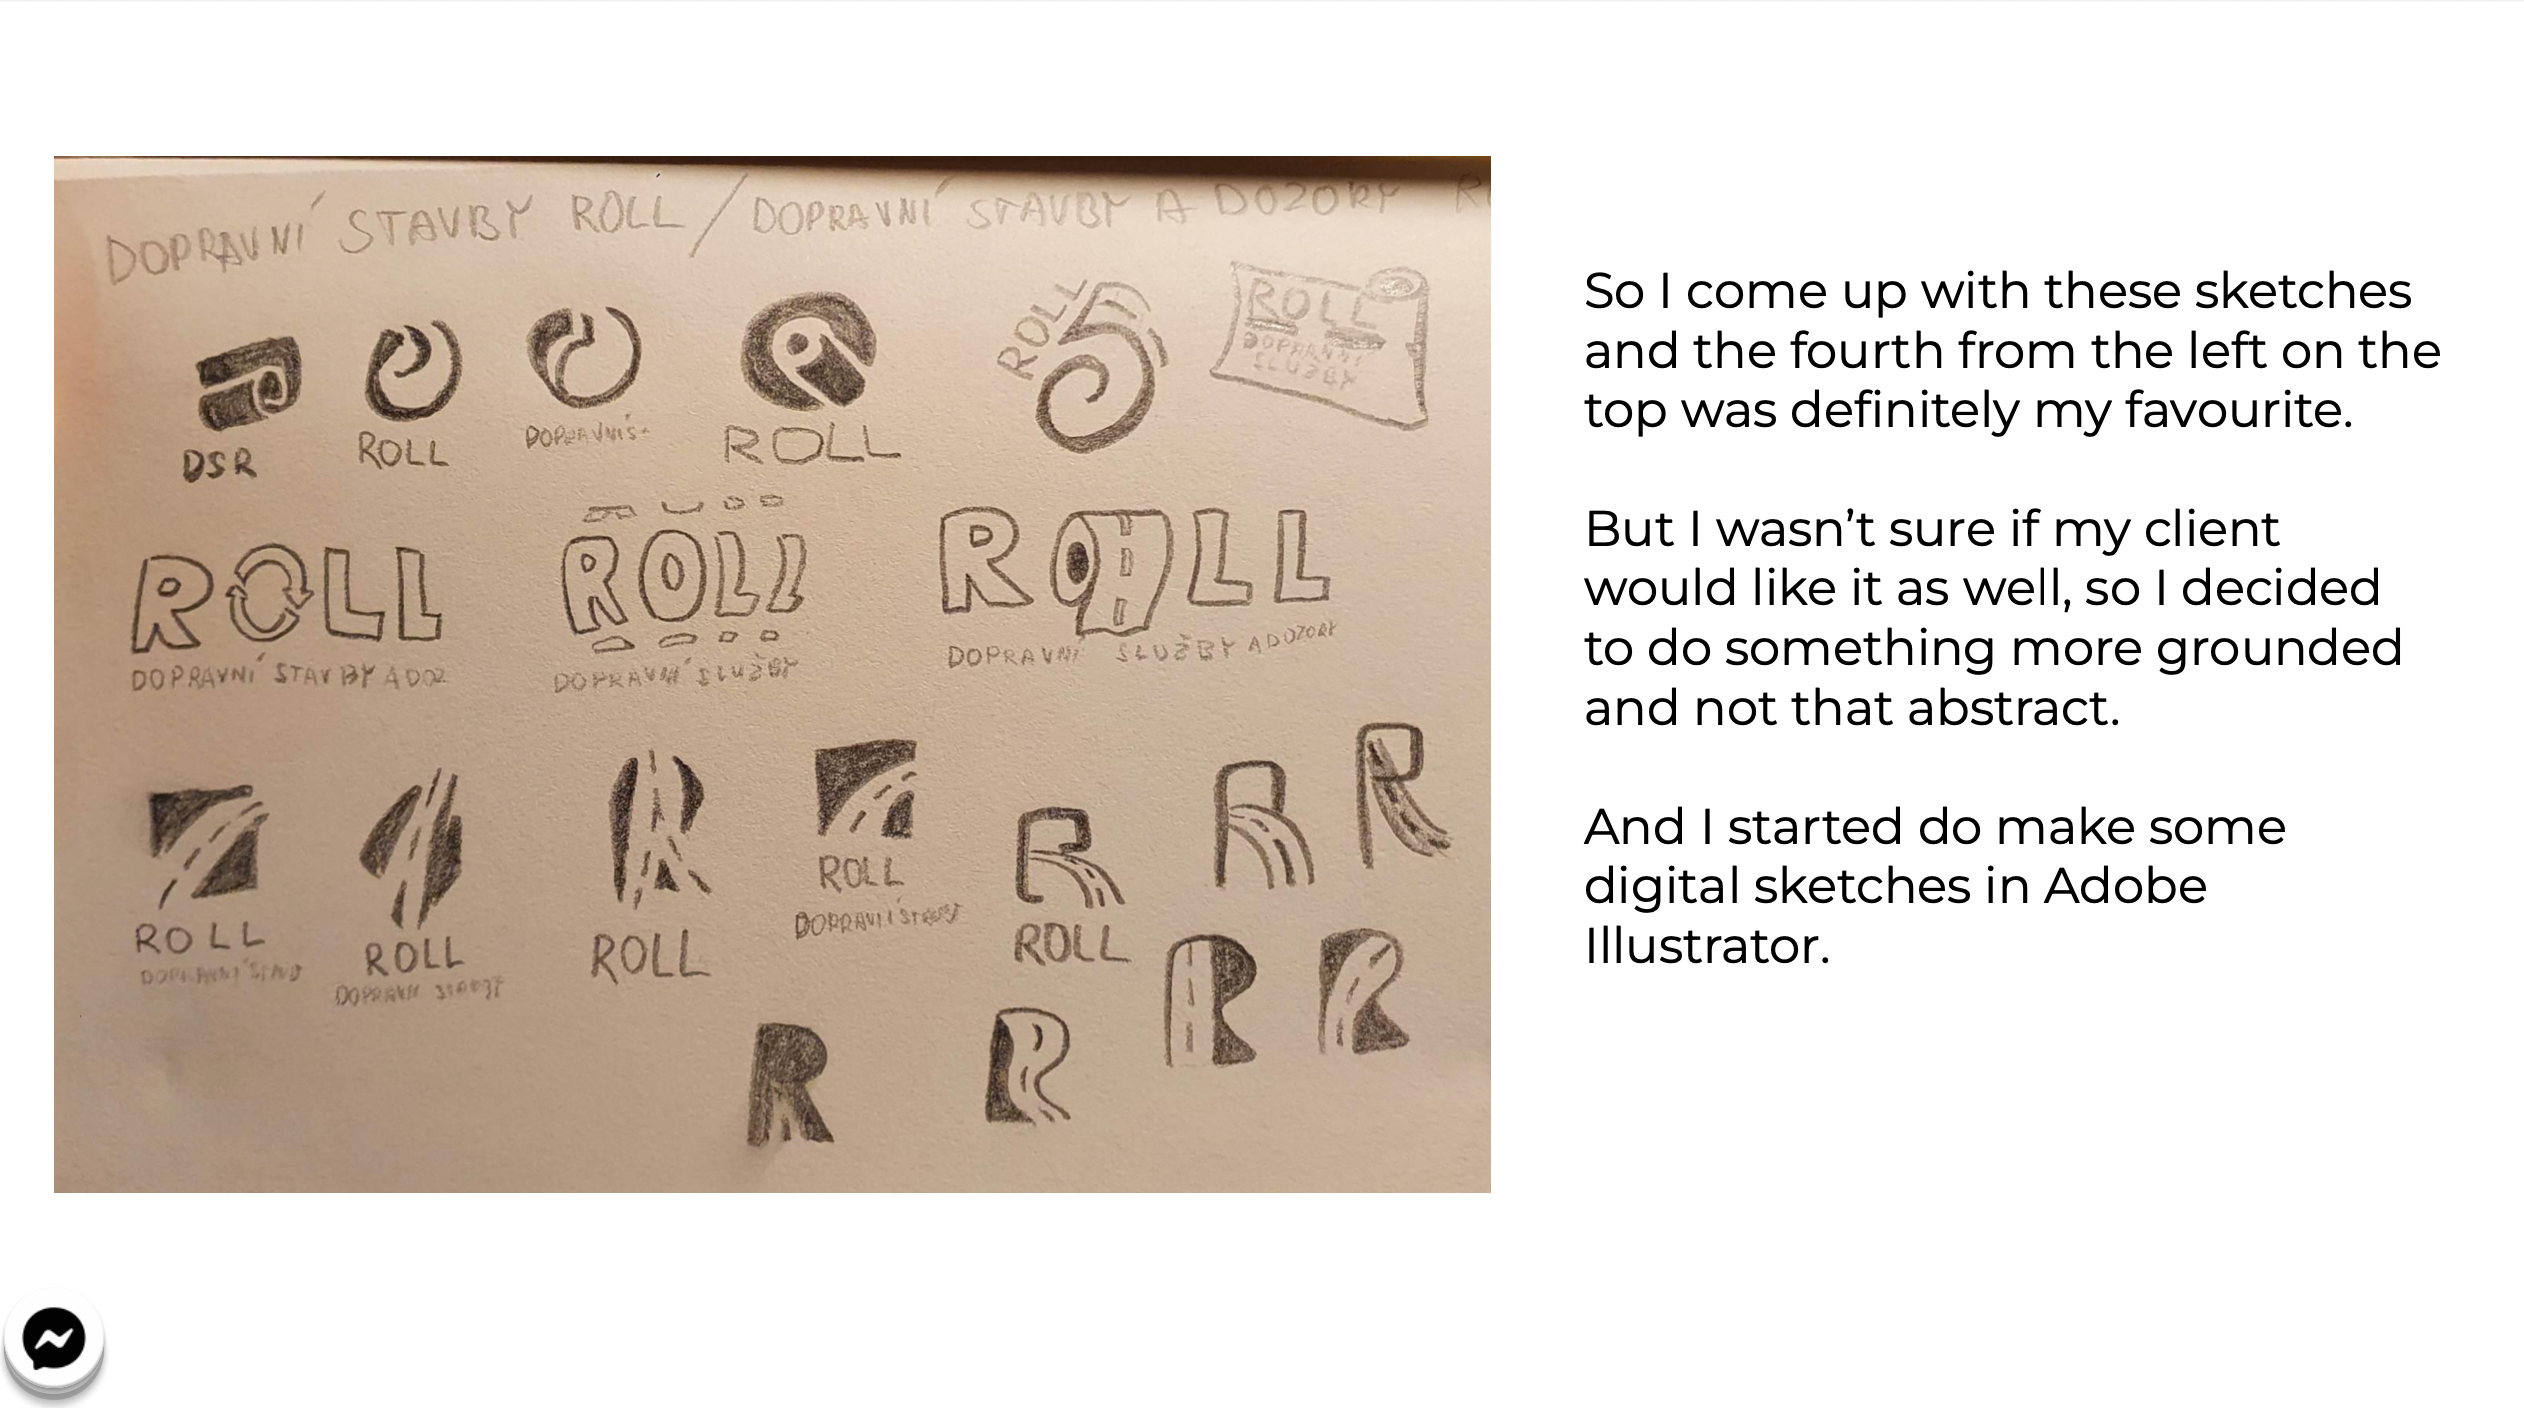 DOPRAVNÍ STAVBY ROLL / DOPRAVNÍ STAVBY A DOZORY
DSR
ROLL
DOPRAVNÍ S
ROLL
ROLL
ROLL
DOPRAVNÍ
SLUŽBY
ROLL
DOPRAVNÍ STAVBY A DOZ
ROLL
DOPRAVNÍ SLUŽBY
ROLL
DOPRAVNÍ SLUŽBY A DOZORY
ROLL
DOPRAVNÍ STAVB
ROLL
DOPRAVNÍ STAVBY
ROLL
ROLL
DOPRAVNÍ STAVBY
R
ROLL
R
R
R
R
R
R
So I come up with these sketches
and the fourth from the left on the
top was definitely my favourite.
But I wasn’t sure if my client
would like it as well, so I decided
to do something more grounded
and not that abstract.
And I started do make some
digital sketches in Adobe
Illustrator.